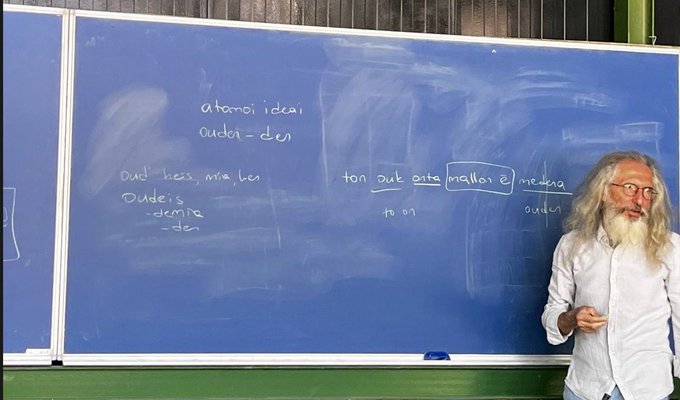 atomoi ideai
oudei-den
oud' heis, mia, hen
oudeis
-demia
-den
ton ouk onta mallon ē medena
to on
ouden